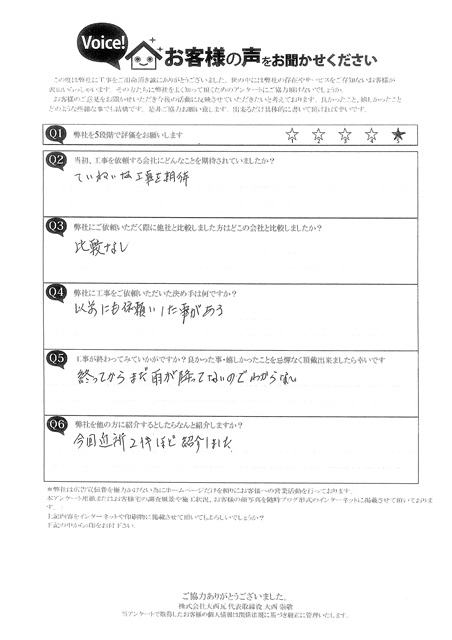 Voice!
お客様の声をお聞かせください
この度は弊社に工事をご用命頂き誠にありがとうございました。世の中には弊社の存在やサービスをご存知ないお客様が
沢山いらっしゃいます。その方たちに弊社をよく知って頂くためのアンケートにご協力頂けないでしょうか。
お客様のご意見をお聞かせいただき今後の活動に反映させていただきたいと考えております。良かったこと、嬉しかったこと
どのような些細な事でも結構です。是非ご協力お願い致します。出来るだけ具体的に書いて頂ければ幸いです。
Q1 弊社を5段階で評価をお願いします
☆1 ☆2 ☆3 ☆4 ★5
Q2 当初、工事を依頼する会社にどんなことを期待されていましたか?
ていねいな工事を期待
Q3 弊社にご依頼いただく際に他社と比較しました方はどこの会社と比較しましたか?
比較なし
Q4 弊社に工事をご依頼いただいた決め手は何ですか?
以前にも依頼した事がある
Q5 工事が終わってみていかがですか?良かった事・嬉しかったことを忌憚なく頂戴出来ましたら幸いです
終ってからまだ雨が降ってないのでわからない
Q6 弊社を他の方に紹介するとしたらなんと紹介しますか?
今回近所2件ほど紹介しました
*弊社は広告宣伝費を極力かけない為にホームページだけを頼りにお客様への営業活動を行っております。
本アンケート用紙またはお客様宅の調査風景や施工状況、お客様の顔写真を随時ブログ形式のインターネットに掲載させて頂いておりま
す。
上記内容をインターネットや印刷物に掲載させて頂いてもよろしいでしょうか?
下記の中から○印をお付け下さい。
ご協力ありがとうございました。
株式会社大西瓦 代表取締役 大西 崇敬
当アンケートで取得したお客様の個人情報は関係法規に基づき厳正に管理いたします。